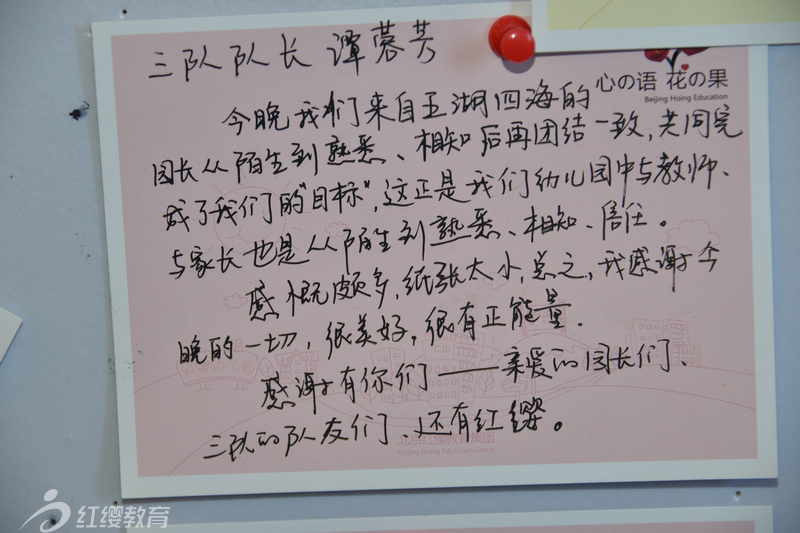 三队队长 谭蓉芳
心の语 花の果
Beijing Hoing Education
今晚我们来自五湖四海的
园长从陌生到熟悉、相知后再团结一致，共同完
成了我们的"目标"，这正是我们幼儿园中与教师、
与家长也是从陌生到熟悉、相知、信任。
感慨颇多，纸张太小，总之，我感谢今
晚的一切，很美好，很有正能量.
感谢有你们——亲爱的园长们、
三队的队友们、还有红缨。
北京红缨教育集团
Beijing Hoing Education Group
红缨教育